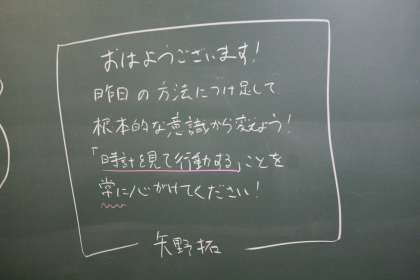 おはようございます!
昨日の方法につけ足して
根本的な意識から変えよう!
「時計を見て行動する」ことを
常に心がけてください!
矢野拓